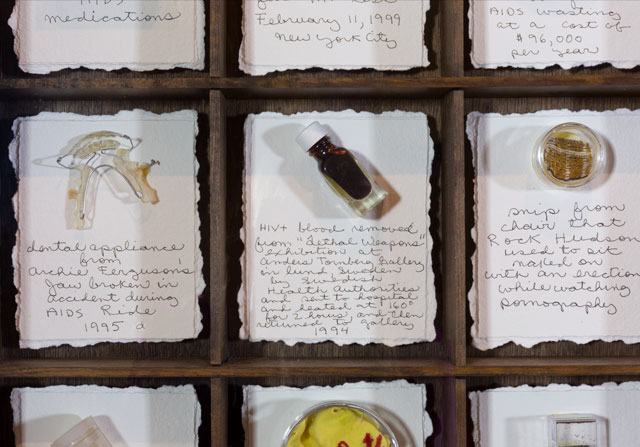 AIDS
medications
February 11, 1999
New York City
AIDS wasting
at a cost of
$96,000
per year
dental appliance
from
Archie Ferguson's
Jaw broken in
accident during
AIDS Ride
1995
HIV+ blood removed
from "Lethal Weapons"
exhibition at
Anders Tornberg Gallery
in Lund, Sweden
by Swedish
Health Authorities
and sent to hospital
and heated at 160°
for 2 hours, and then
returned to gallery
1994
snip from
chair that
Rock Hudson
used to sit
naked on
with an erection
while watching
pornography